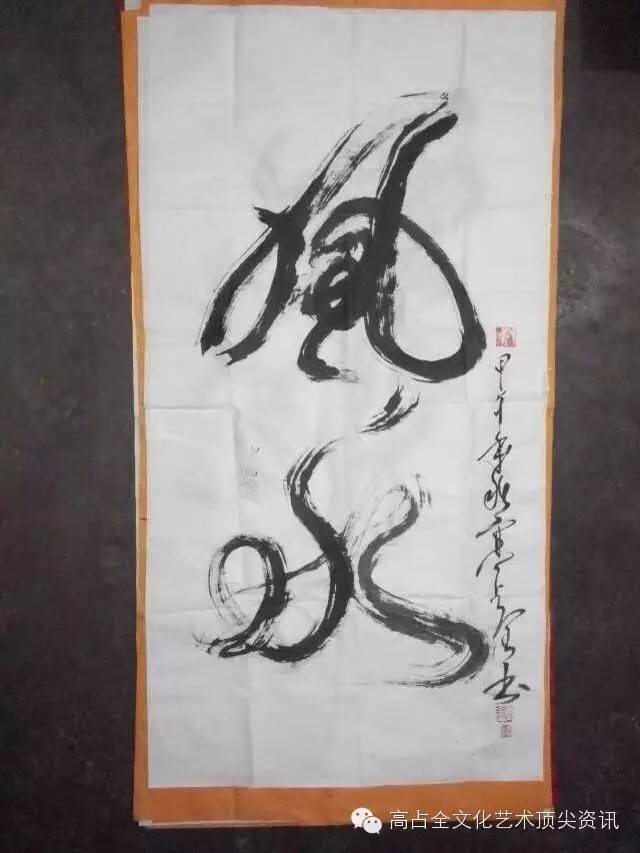 風水
甲午年秋高占全书
高占全文化艺术顶尖资讯